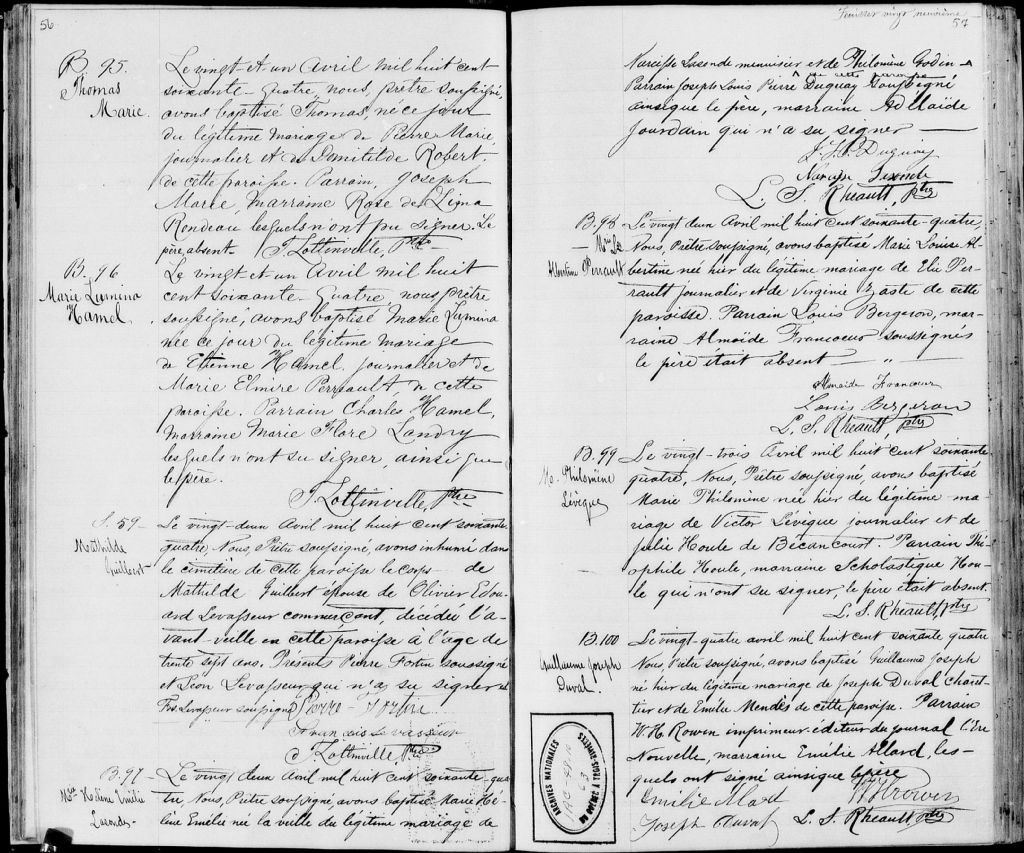 56
B. 95.
Thomas
Marie.
Le vingt-et-un Avril mil huit cent
soixante-Quatre, nous, prêtre soussigné,
avons baptisé Thomas, né ce jour
du légitime mariage de Pierre Marie,
journalier et de Domitilde Robert.
de cette paroisse. Parrain, Joseph
Marie, Marraine Rose de Lima
Rondeau, lesquels n'ont pu signer. Le
père, absent. J Lottinville, Ptre
B. 96
Marie Lumina
Hamel.
Le vingt et un Avril mil huit
cent soixante-Quatre, nous prêtre
soussigné, avons baptisé Marie Lumina
née ce jour du légitime mariage
de Etienne Hamel, journalier et de
Marie Elmire Perreault, de cette
paroisse. Parrain Charles Hamel,
Marraine Marie Flore Landry
lesquels n'ont su signer, ainsi que
le père.
J Lottinville, Ptre
S. 59-
Mathilde
Guilbert-
Le vingt-deux Avril mil huit cent soixante
quatre, Nous, Prêtre soussigné, avons inhumé dans
le cimetière de cette paroisse le corps de
Mathilde Guilbert épouse de Olivier Edou-
ard Levasseur commerçant, décédée l'a-
vant-veille en cette paroisse à l'âge de
trente sept ans. Présents Pierre Fortin soussigné
et Léon Levasseur qui n'a su signer et
Frs Levasseur soussigné Pierre Fortin
Francois Levasseur
J Lottinville Ptre
B. 97-
Mie Héline Emélie
Lasonde-
Le vingt deux Avril mil huit cent soixante-qua-
tre, Nous, Prêtre soussigné, avons baptisé Marie Hé-
line Emélie né la veille du légitime mariage de
Feuillet vingt neuvième
57
Narcisse Lasonde menuisier et de Philomène Godin
de cette paroisse
Parrain Joseph Louis Pierre Duguay soussigné
ainsique le père, marraine Adélaide
Jourdain qui n'a su signer
J. L. P. Duguay
Narcisse
L. S. Rheault, ptre
B. 98
Albertine Perrault
Le vingt deux Avril mil huit cent soixante-quatre,
Nous, Prêtre soussigné, avons baptisé Marie Louise Al-
bertine née hier du légitime mariage de Elie Per-
rault journalier et de Virginie Zaste de cette
paroisse. Parrain Louis Bergeron, mar-
raine Almoïde Francoeur soussignés
le père était absent
Almaide Francoeur
Louis Bergeron
L. S. Rheault, ptre
B. 99
M. Philomène
Lévêque
Le vingt-trois Avril mil huit cent soixante
quatre, Nous, Prêtre soussigné, avons baptisé
Marie Philomène née hier du légitime ma-
riage de Victor Lévêque journalier et de
Julie Houle de Bécancourt. Parrain Thé-
ophile Houle, marraine Scholastique Hou-
le qui n'ont su signer, le père était absent.
L. S. Rheault, ptre
B. 100
Guillaume Joseph
Duval.
Le vingt-quatre avril mil huit cent soixante quatre
Nous Prêtre soussigné, avons baptisé Guillaume Joseph
né hier du légitime mariage de Joseph Duval charet-
tier et de Emilie Mendès de cette paroisse. Parrain
W. H. Rowen imprimeur-éditeur du journal L'Ere
Nouvelle, marraine Emélie Allard, les-
quels ont signé ainsique le père
Emilie Allard
W H Rowen
Joseph Duval
L. S. Rheault, ptre
ARCHIVES NATIONALES
DU QUÉBEC À TROIS-RIVIÈRES